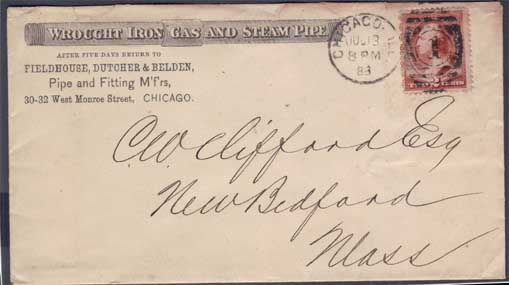 WROUGHT IRON GAS AND STEAM PIPE
AFTER FIVE DAYS RETURN TO
FIELDHOUSE, DUTCHER & BELDEN,
Pipe and Fitting M'f'rs,
30-32 West Monroe Street, CHICAGO.
CHICAGO, ILL.
8 PM
83
1
2
CW Clifford Esq
New Bedford
Mass